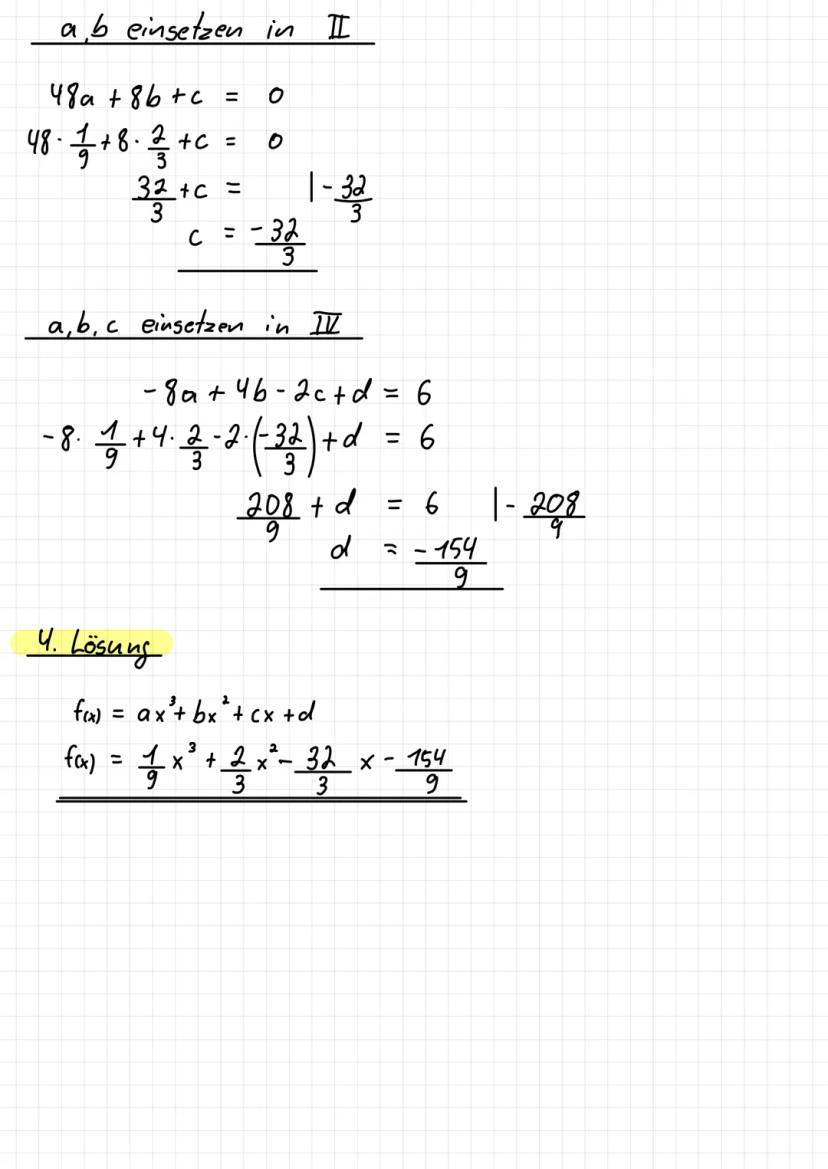 a,b einsetzen in II
48a + 8b + c = 0
48 · 1/9 + 8 · 2/3 + c = 0
32/3 + c = | - 32/3
c = - 32/3
a, b, c einsetzen in IV
-8a + 4b - 2c + d = 6
-8 · 1/9 + 4 · 2/3 - 2 · (-32/3) + d = 6
208/9 + d = 6 | - 208/9
d = - 154/9
4. Lösung
f(x) = ax³ + bx² + cx + d
f(x) = 1/9 x³ + 2/3 x² - 32/3 x - 154/9